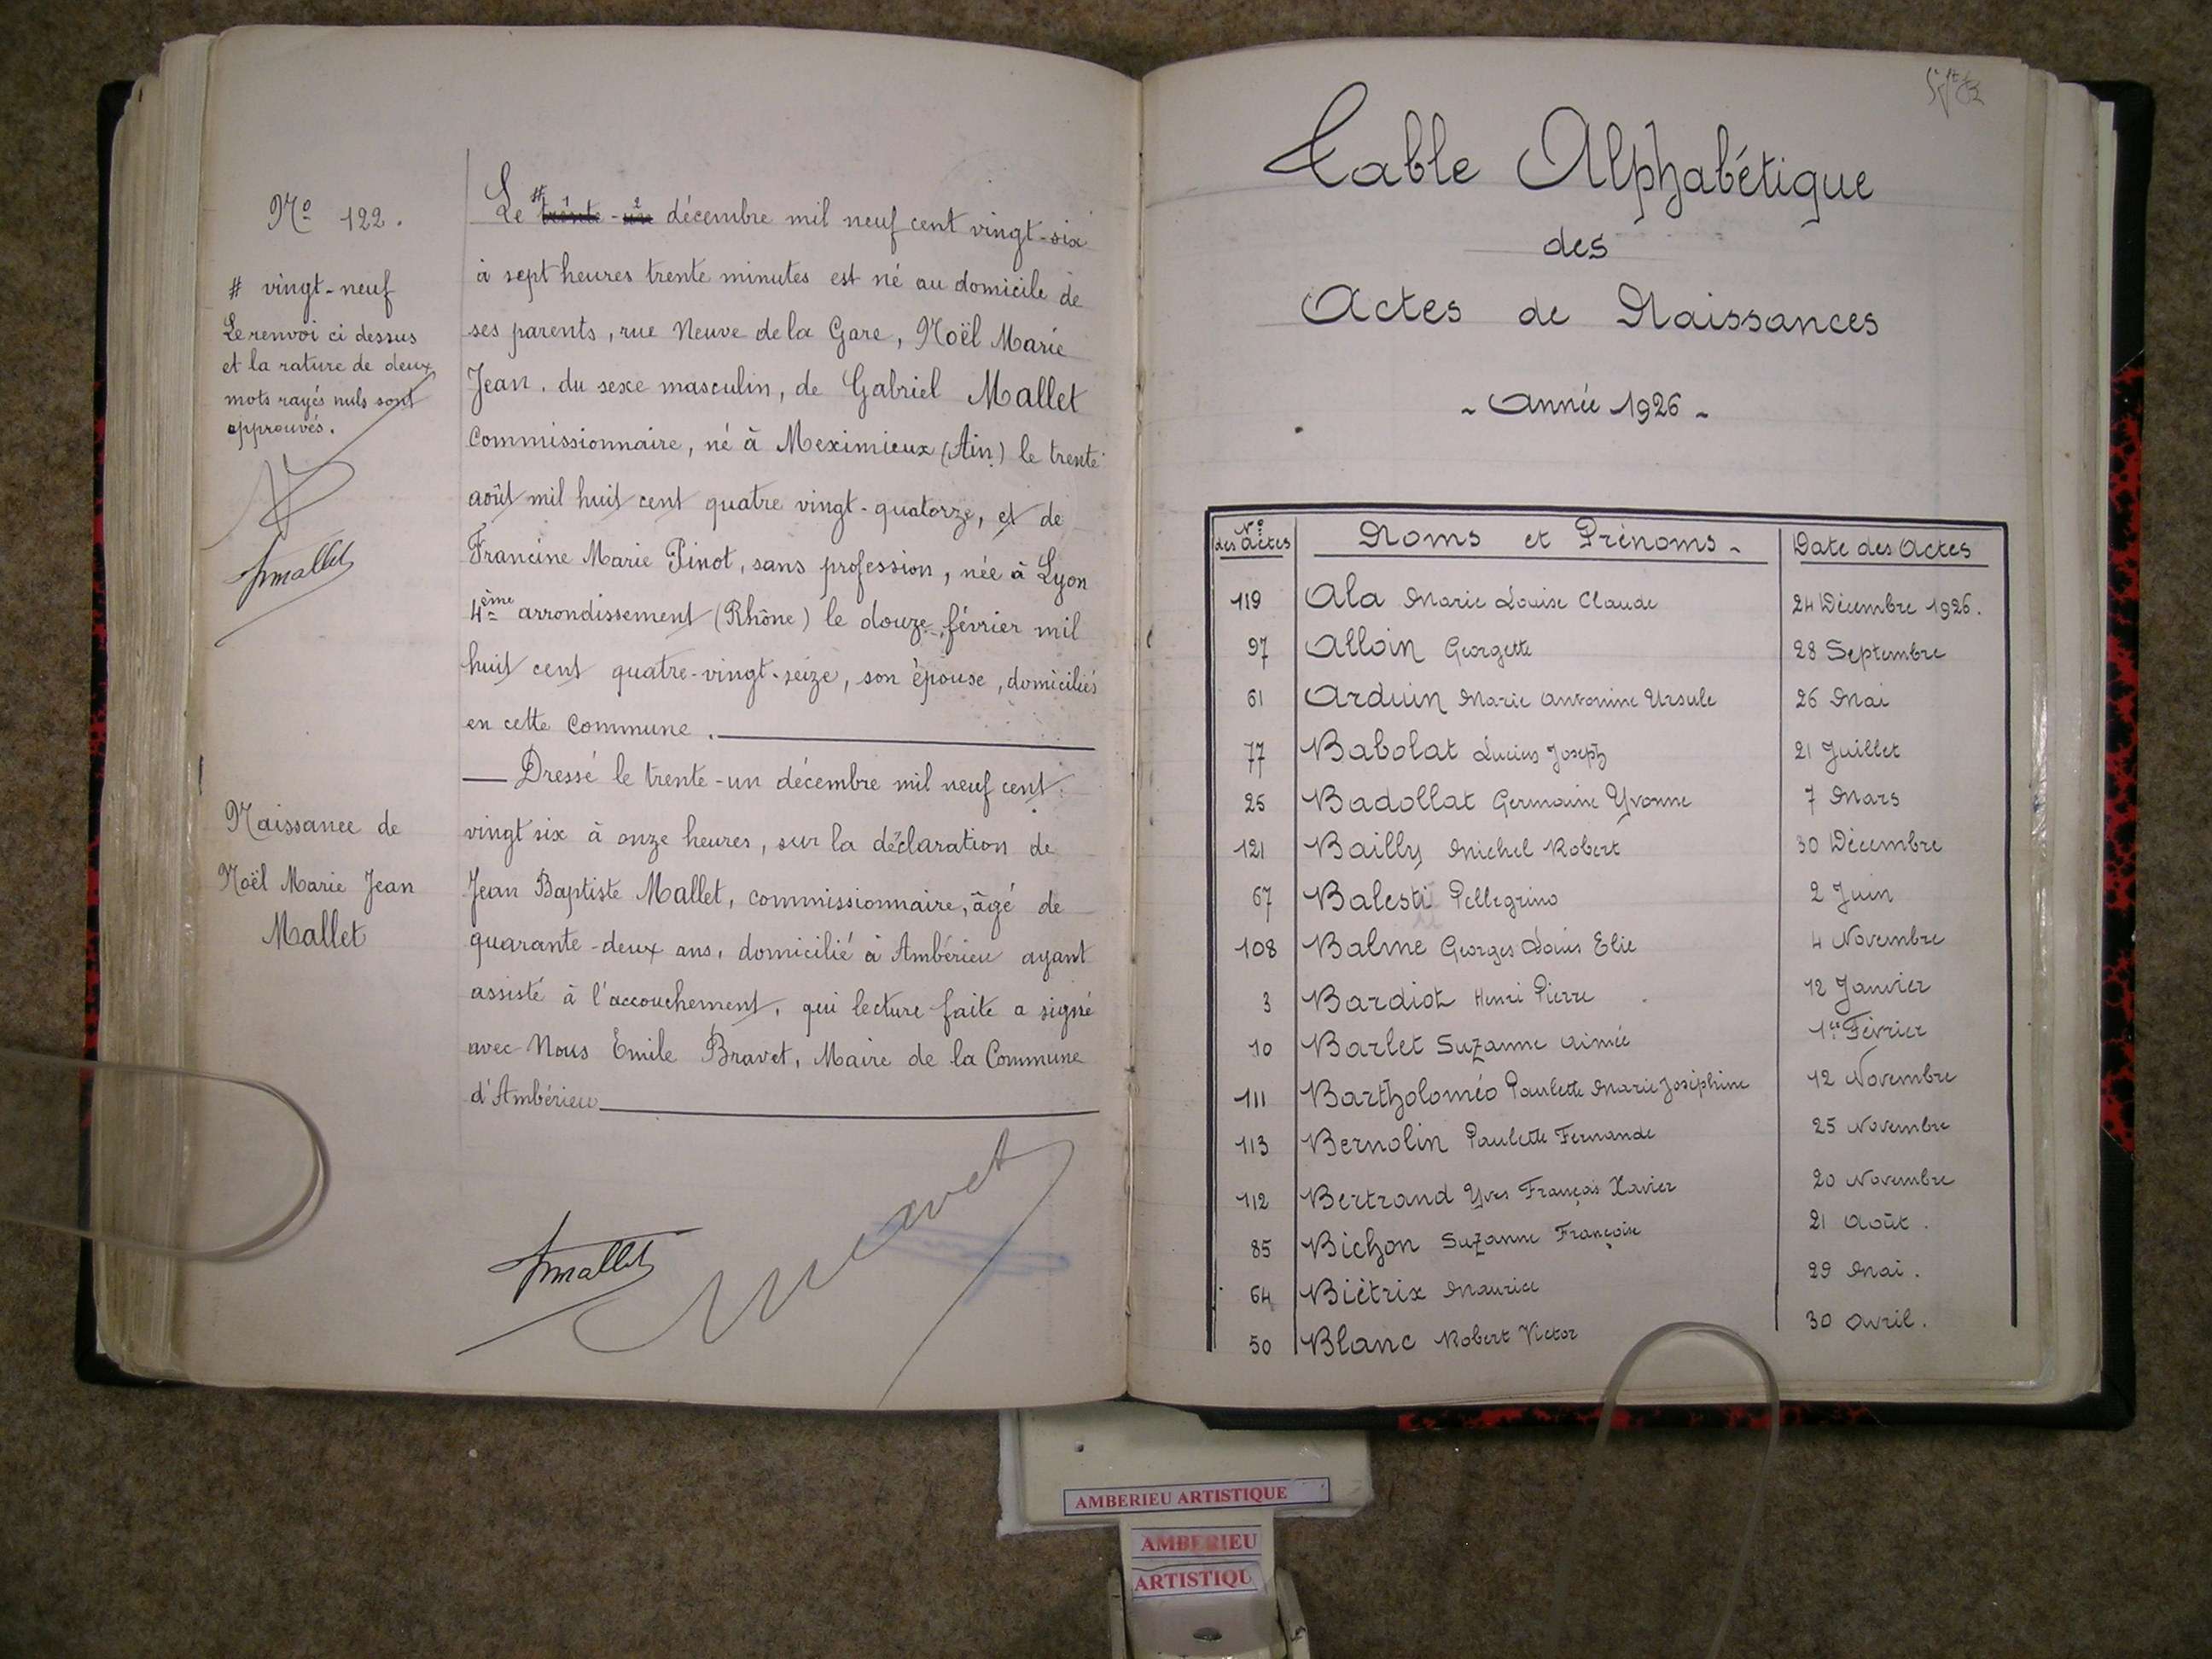 Nº 122.
# vingt-neuf
Le renvoi ci dessus
et la rature de deux
mots rayés nuls sont
approuvés.
Jmallet
Naissance de
Noël Marie Jean
Mallet
Le # trente-un décembre mil neuf cent vingt-six
à sept heures trente minutes est né au domicile de
ses parents, rue Neuve de la Gare, Noël Marie
Jean. du sexe masculin, de Gabriel Mallet
Commissionnaire, né à Meximieux (Ain) le trente
août mil huit cent quatre vingt-quatorze, et de
Francine Marie Pinot, sans profession, née à Lyon
4ème arrondissement (Rhône) le douze février mil
huit cent quatre-vingt-seize, son épouse, domiciliés
en cette Commune.
Dressé le trente-un décembre mil neuf cent
vingt six à onze heures, sur la déclaration de
Jean Baptiste Mallet, commissionnaire, âgé de
quarante-deux ans, domicilié à Ambérieu ayant
assisté à l'accouchement, qui lecture faite a signé
avec Nous Emile Bravet, Maire de la Commune
d'Ambérieu
Jmallet
Table Alphabétique
des
Actes de Naissances
- Année 1926 -
Nº des Actes Noms et Prénoms - Date des Actes
119 Ala Marie Louise Claude 24 Décembre 1926.
97 Alloin Georgette 28 Septembre
61 Arduin Marie Antonine Ursule 26 Mai
77 Babolat Lucien Joseph 21 Juillet
25 Badollat Germaine Yvonne 7 Mars
121 Bailly Michel Robert 30 Décembre
67 Balesti Pellegrino 2 Juin
108 Balme Georges Louis Elie 4 Novembre
3 Bardiot Henri Pierre 12 Janvier
10 Barlet Suzanne Aimée 1er Février
111 Bartholoméo Paulette Marie Joséphine 12 Novembre
113 Bernolin Paulette Fernande 25 Novembre
112 Bertrand Yves François Xavier 20 Novembre
85 Bichon Suzanne Françoise 21 Août.
64 Biétrix Maurice 29 Mai.
50 Blanc Robert Victor 30 Avril.
AMBERIEU ARTISTIQUE
AMBERIEU
ARTISTIQU